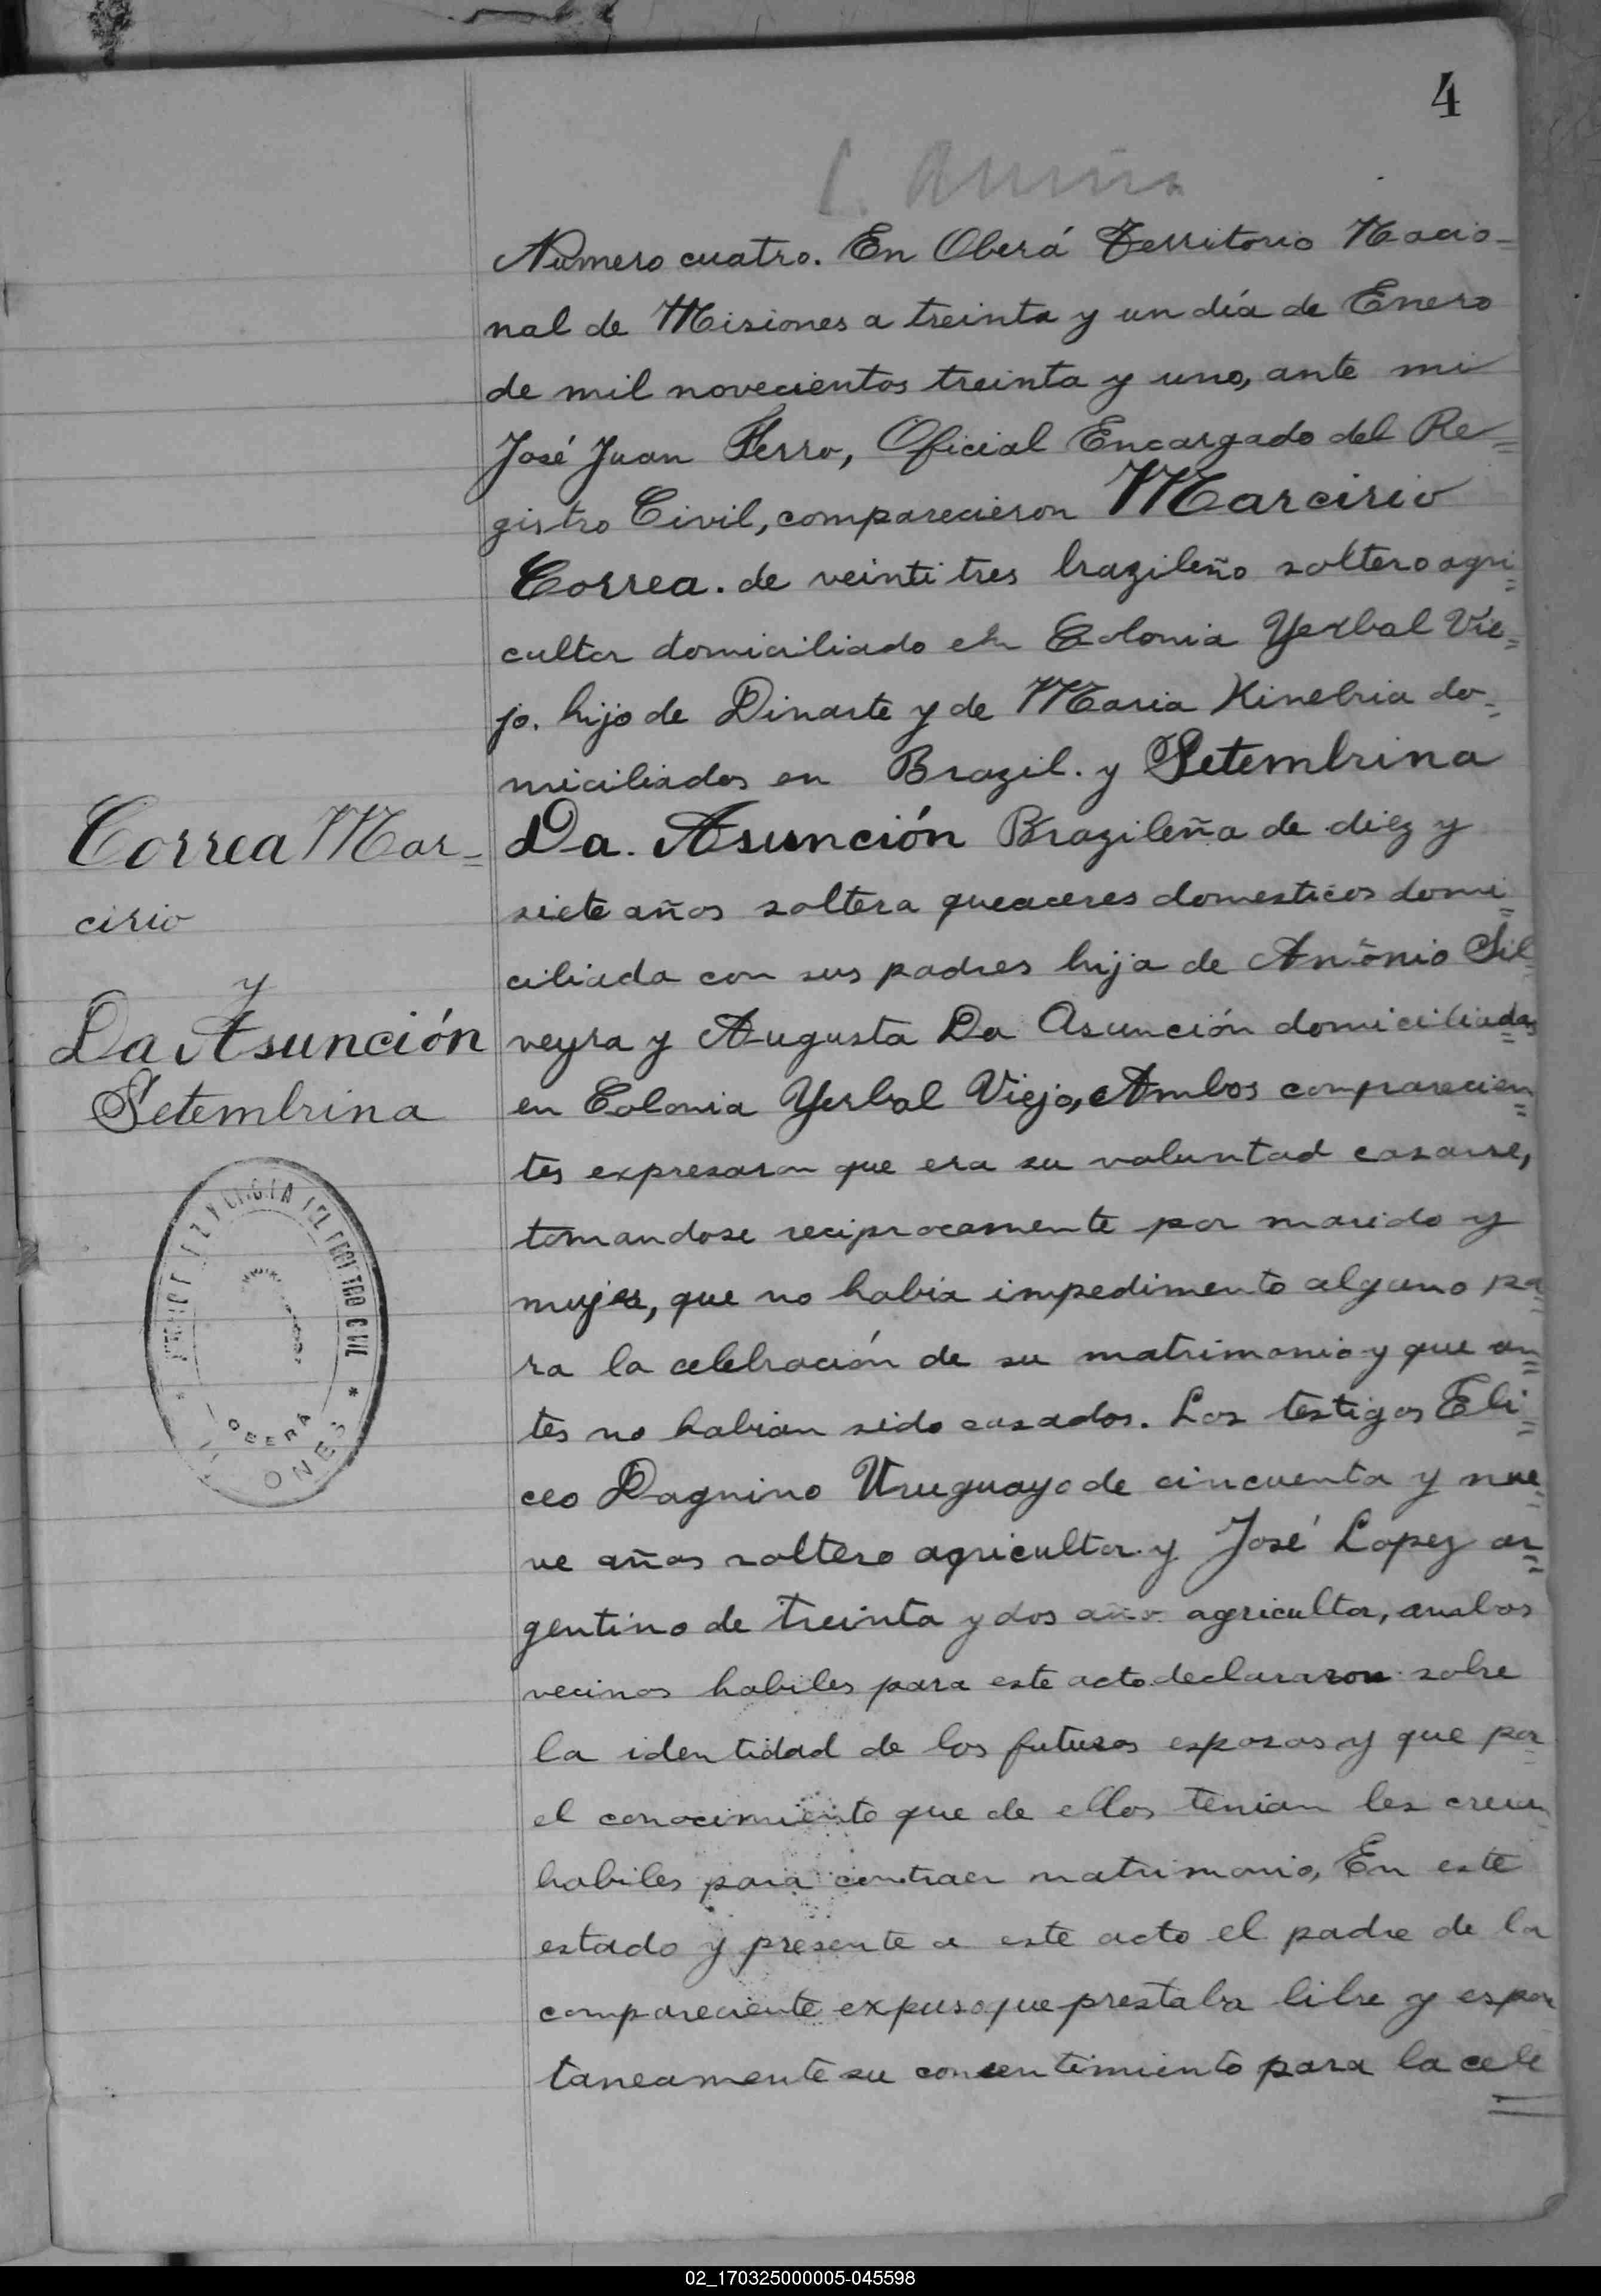 4
Numero cuatro. En Oberá Territorio Nacio=
nal de Misiones a treinta y un día de Enero
de mil novecientos treinta y uno, ante mi
José Juan Ferro, Oficial Encargado del Re=
gistro Civil, comparecieron Marcirio
Correa. de veinti tres brazileño soltero agri=
cultor domiciliado en Colonia Yerbal Vie=
jo. hijo de Dinarte y de Maria Kinebria do=
miciliados en Brazil. y Setembrina
Da. Asunción Brazileña de diez y
siete años soltera queaceres domesticos domi=
ciliada con sus padres hija de Antônio Sil
veyra y Augusta Da Asunción domiciliadas
en Colonia Yerbal Viejo, Ambos comparecien=
tes expresaron que era su voluntad casarse,
tomandose reciprocamente por marido y
mujer, que no habia impedimento alguno pa=
ra la celebración de su matrimonio y que an=
tes no habian sido casados. Los testigos Eli=
ceo Dagnino Uruguayo de cincuenta y nue=
ve años soltero agricultor y José Lopez ar=
gentino de treinta y dos año agricultor, ambos
vecinos habiles para este acto declararon sobre
la identidad de los futuros esposos y que por
el conocimiento que de ellos tenian les creian
habiles para contraer matrimonio, En este
estado y presente a este acto el padre de la
compareciente expuso que prestaba libre y espon
taneamente su consentimiento para la cele
=
Correa Mar=
cirio
y
Da Asunción
Setembrina
REGISTRO CIVIL
* OBERÁ *
02_170325000005-045598